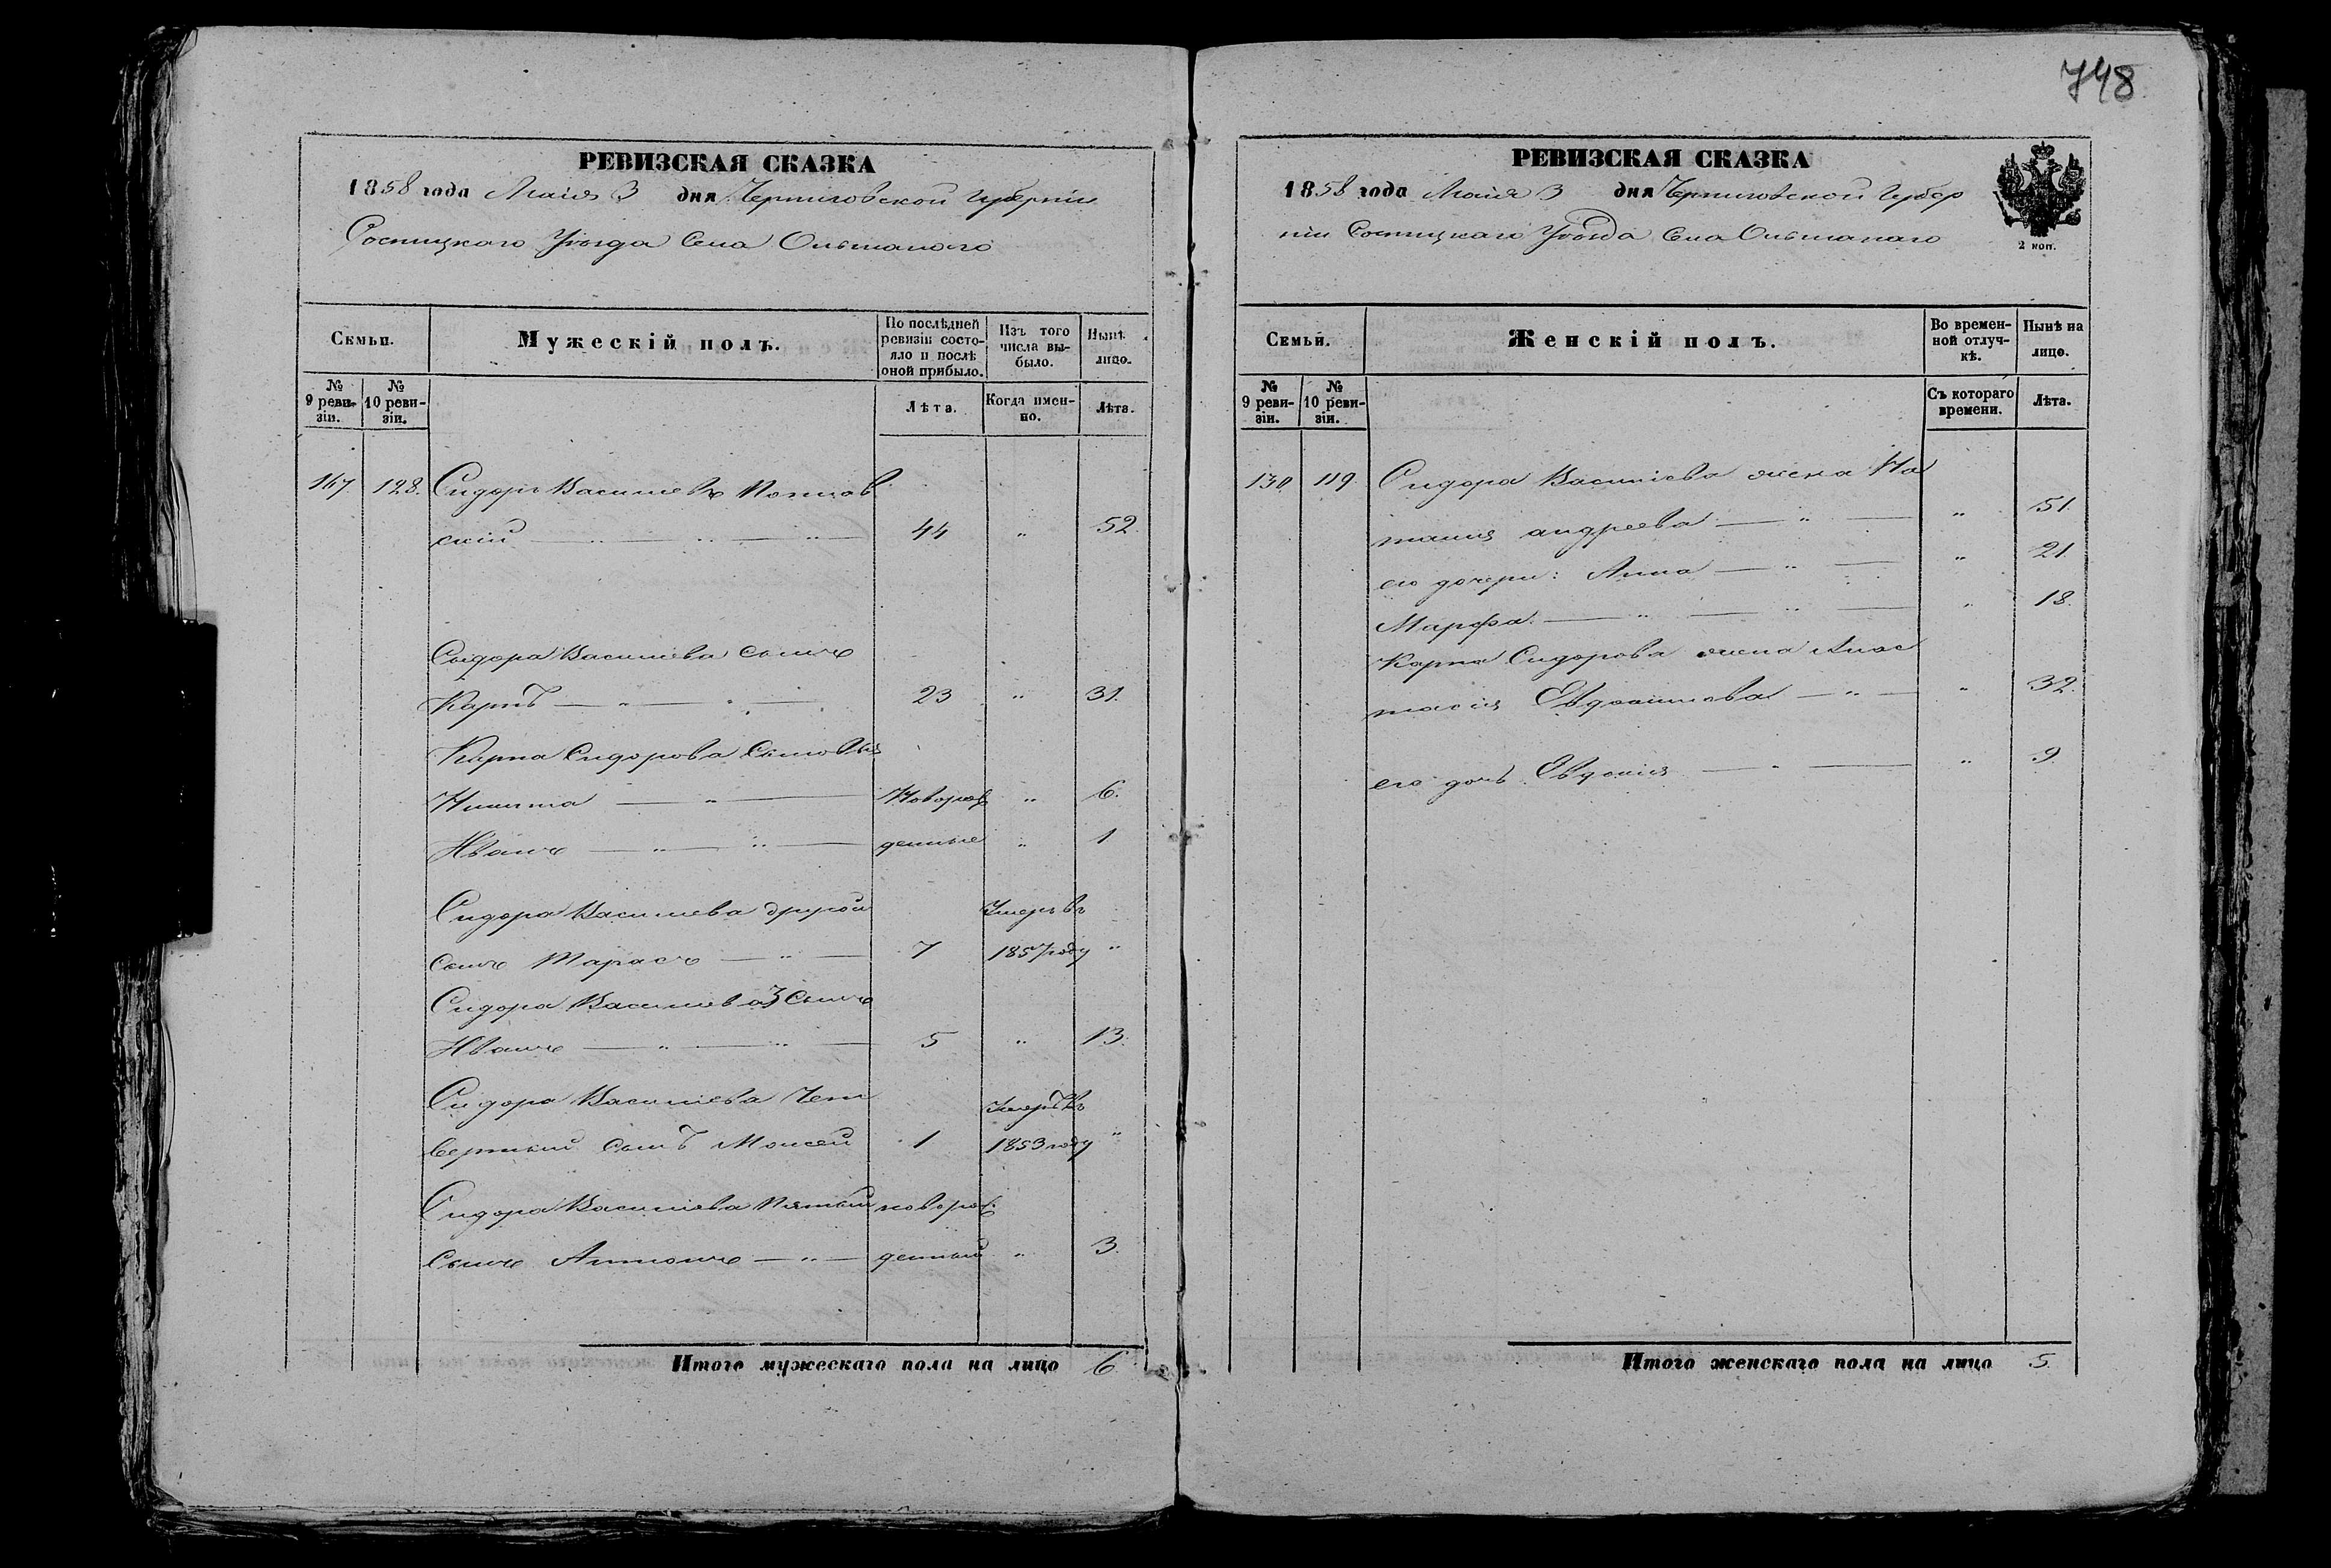 748
РЕВИЗСКАЯ СКАЗКА
1858 года Маія 3 дня Черниговской Губерніи
Сосницкаго Уѣзда Села Ольшаного
Семьи.
Мужескій полъ.
По послѣдней ревизіи состояло и послѣ оной прибыло.
Изъ того числа выбыло.
Нынѣ лицо.
№ 9 ревизіи.
№ 10 ревизіи.
Лѣта.
Когда именно.
Лѣта.
167 128. Сидоръ Васильевъ
скій 44 " 52.
Сидора Васильева сынъ
Карпъ 23 " 31.
Карпа Сидорова сыновья
Никита Новорож " 6.
Иванъ денные " 1
Сидора Васильева другой Умеръ въ
сынъ Тарасъ 7 1857 году "
Сидора Васильева 3 сынъ
Иванъ 5 " 13.
Сидора Васильева Чет Умеръ въ
вертый сынъ Моисей 1 1853 году "
Сидора Васильева Пятый новорож
сынъ Антонъ денный " 3.
Итого мужескаго пола на лицо 6
РЕВИЗСКАЯ СКАЗКА
1858 года Маія 3 дня Черниговской Губер
ніи Сосницкаго Уѣзда Села Ольшанаго
2 коп.
Семьи.
Женскій полъ.
Во временной отлучкѣ.
Нынѣ на лицо.
№ 9 ревизіи.
№ 10 ревизіи.
Съ котораго времени.
Лѣта.
130 119 Сидора Васильева жена На
талия андреева " 51.
его дочери: Анна " 21.
Марфа " 18.
Карпа Сидорова жена Анас
тасія " 32.
его дочь Евдокія " 9
Итого женскаго пола на лицо 5.